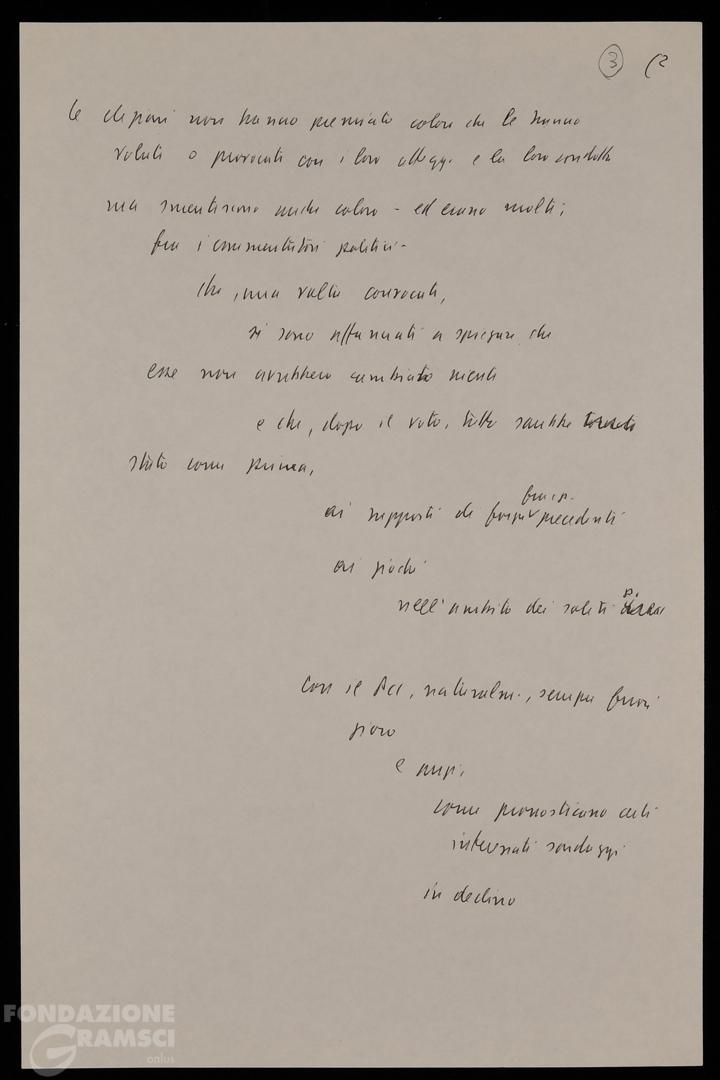 ③ (2
le elezioni non hanno premiato coloro che le hanno
voluti o provocati con i loro attegg. e la loro condotta
ma smentiscono anche coloro - ed erano molti,
fra i commentatori politici -
che, una volta convocati,
si sono affannati a spiegare che
esse non avrebbero cambiato niente
e che, dopo il voto, tutto sarebbe
stato come prima,
ai rapporti di precedenti
ai giochi
nell'ambito dei soliti
con il Pci, naturalm., sempre fuori
gioco
e anzi,
come pronosticano certi
interessati sondaggi
in declino
FONDAZIONE
GRAMSCI
onlus